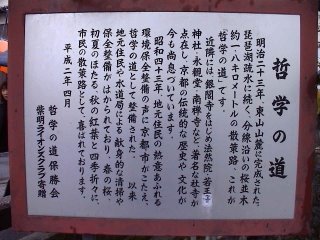 哲学の道
明治二十三年、東山山麓に完成された、
琵琶湖疏水に続く、分線沿いの桜並木
約一・八キロメートルの散策路、これが
哲学の道です。
近隣には、銀閣寺をはじめ法然院、若王子
神社、永観堂、南禅寺など、著名な社寺が
点在し、京都の伝統的な歴史や文化が
今も尚息づいています。
昭和四十三年、地元住民の熱意あふれる
環境保全整備の声に京都市がこたえ、
哲学の道として整備された。 以来
地元住民や水道局による献身的な清掃や
保全整備がはかられており、春の桜、
初夏のほたる、秋の紅葉と四季折々に、
市民の散策路として、喜ばれております。
平成二年四月
哲学の道保勝会
紫明ライオンズクラブ寄贈